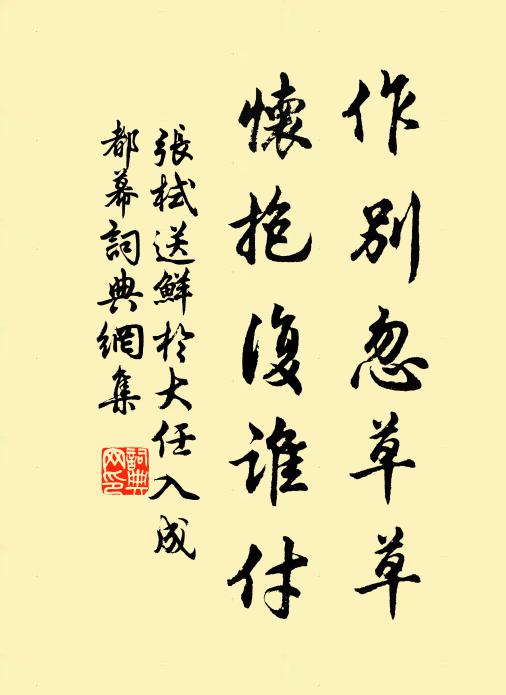 作別忽草草
懷抱復誰付
張栻送鮮於大任入成
都幕詞典網集
詞典網印